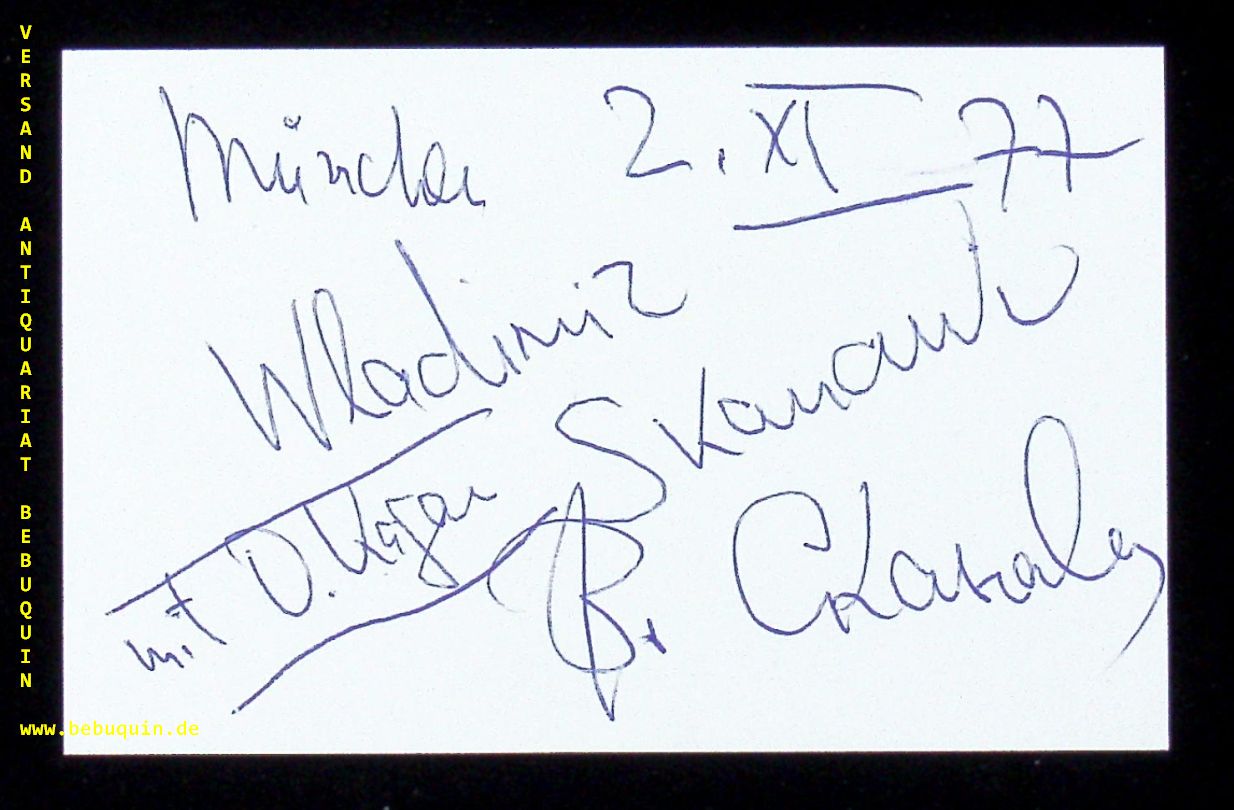 VERSAND ANTIQUARIAT BEBUQUIN
München 2. XI 77
Wladimir
Skanawi
mit O. Kagan
В. Сканави
www.bebuquin.de